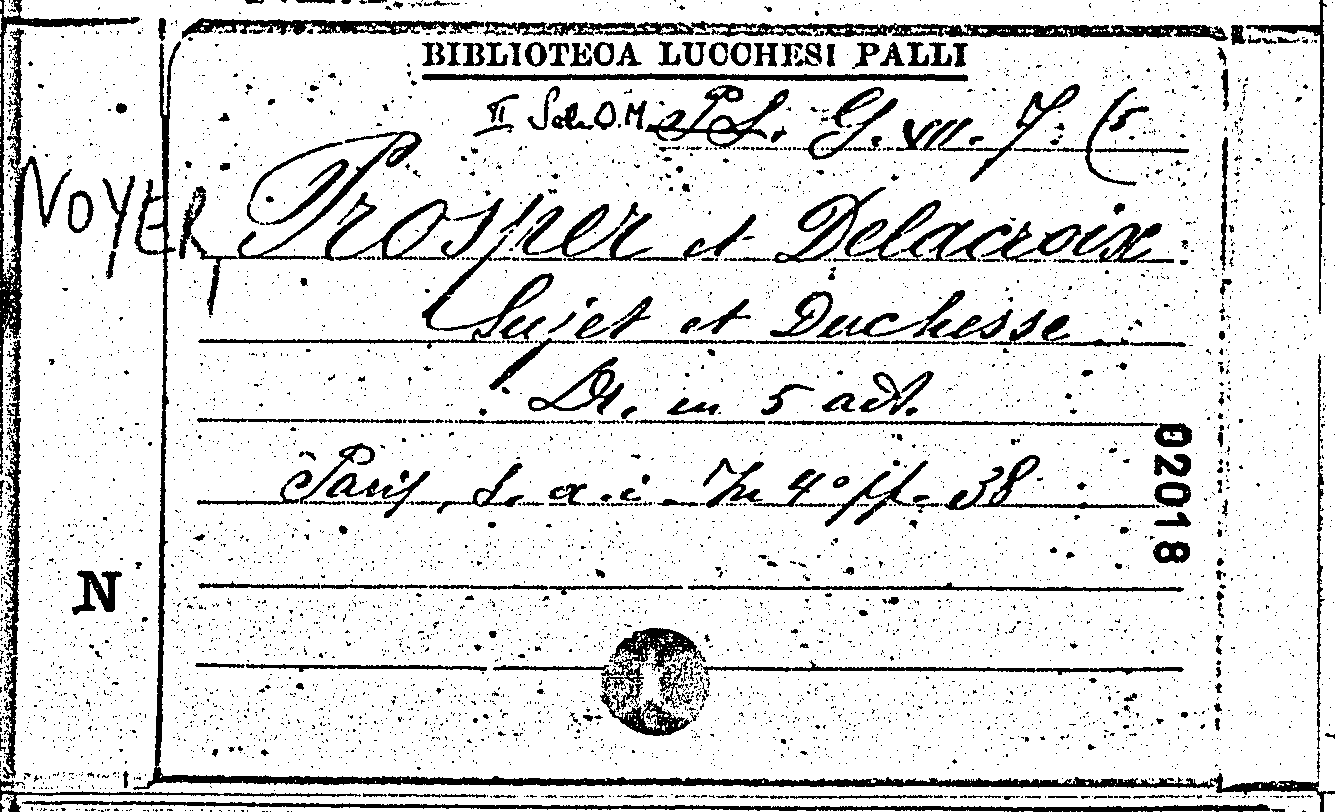 BIBLIOTECA LUCCHESI PALLI
II Sal. O.M. P.L. G. VII. 7. (5
NOYER, Prosper et Delacroix
Sujet et Duchesse
Dr. in 5 act.
Paris, s. a. i. In 4° pp. 38
02018
N